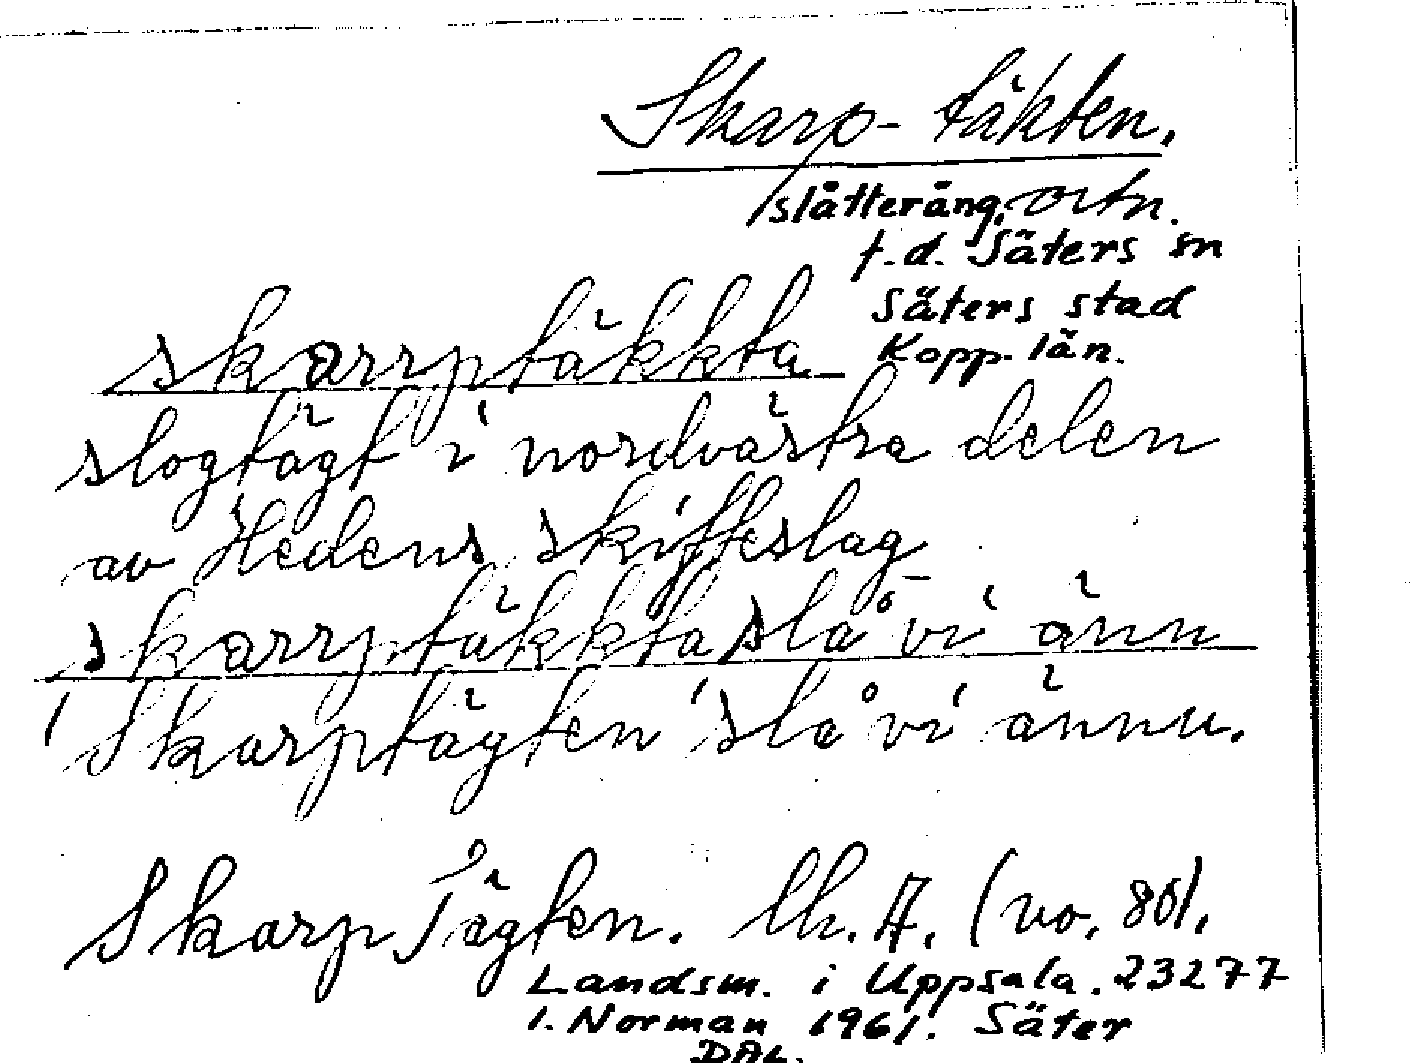 Skarp-täkten.
slåtteräng, ortn.
f.d. Säters sn
Säters stad
Kopp. län.
skarrptäkkta
slogtägt i nordvästra delen
av Hedens skifteslag
skarrptäkkta slå vi änn
'Skarptägten' slå vi ännu.
Skarp Tägten. lk. A. (no. 80).
Landsm. i Uppsala. 23277
I. Norman 1961. Säter
DAL.